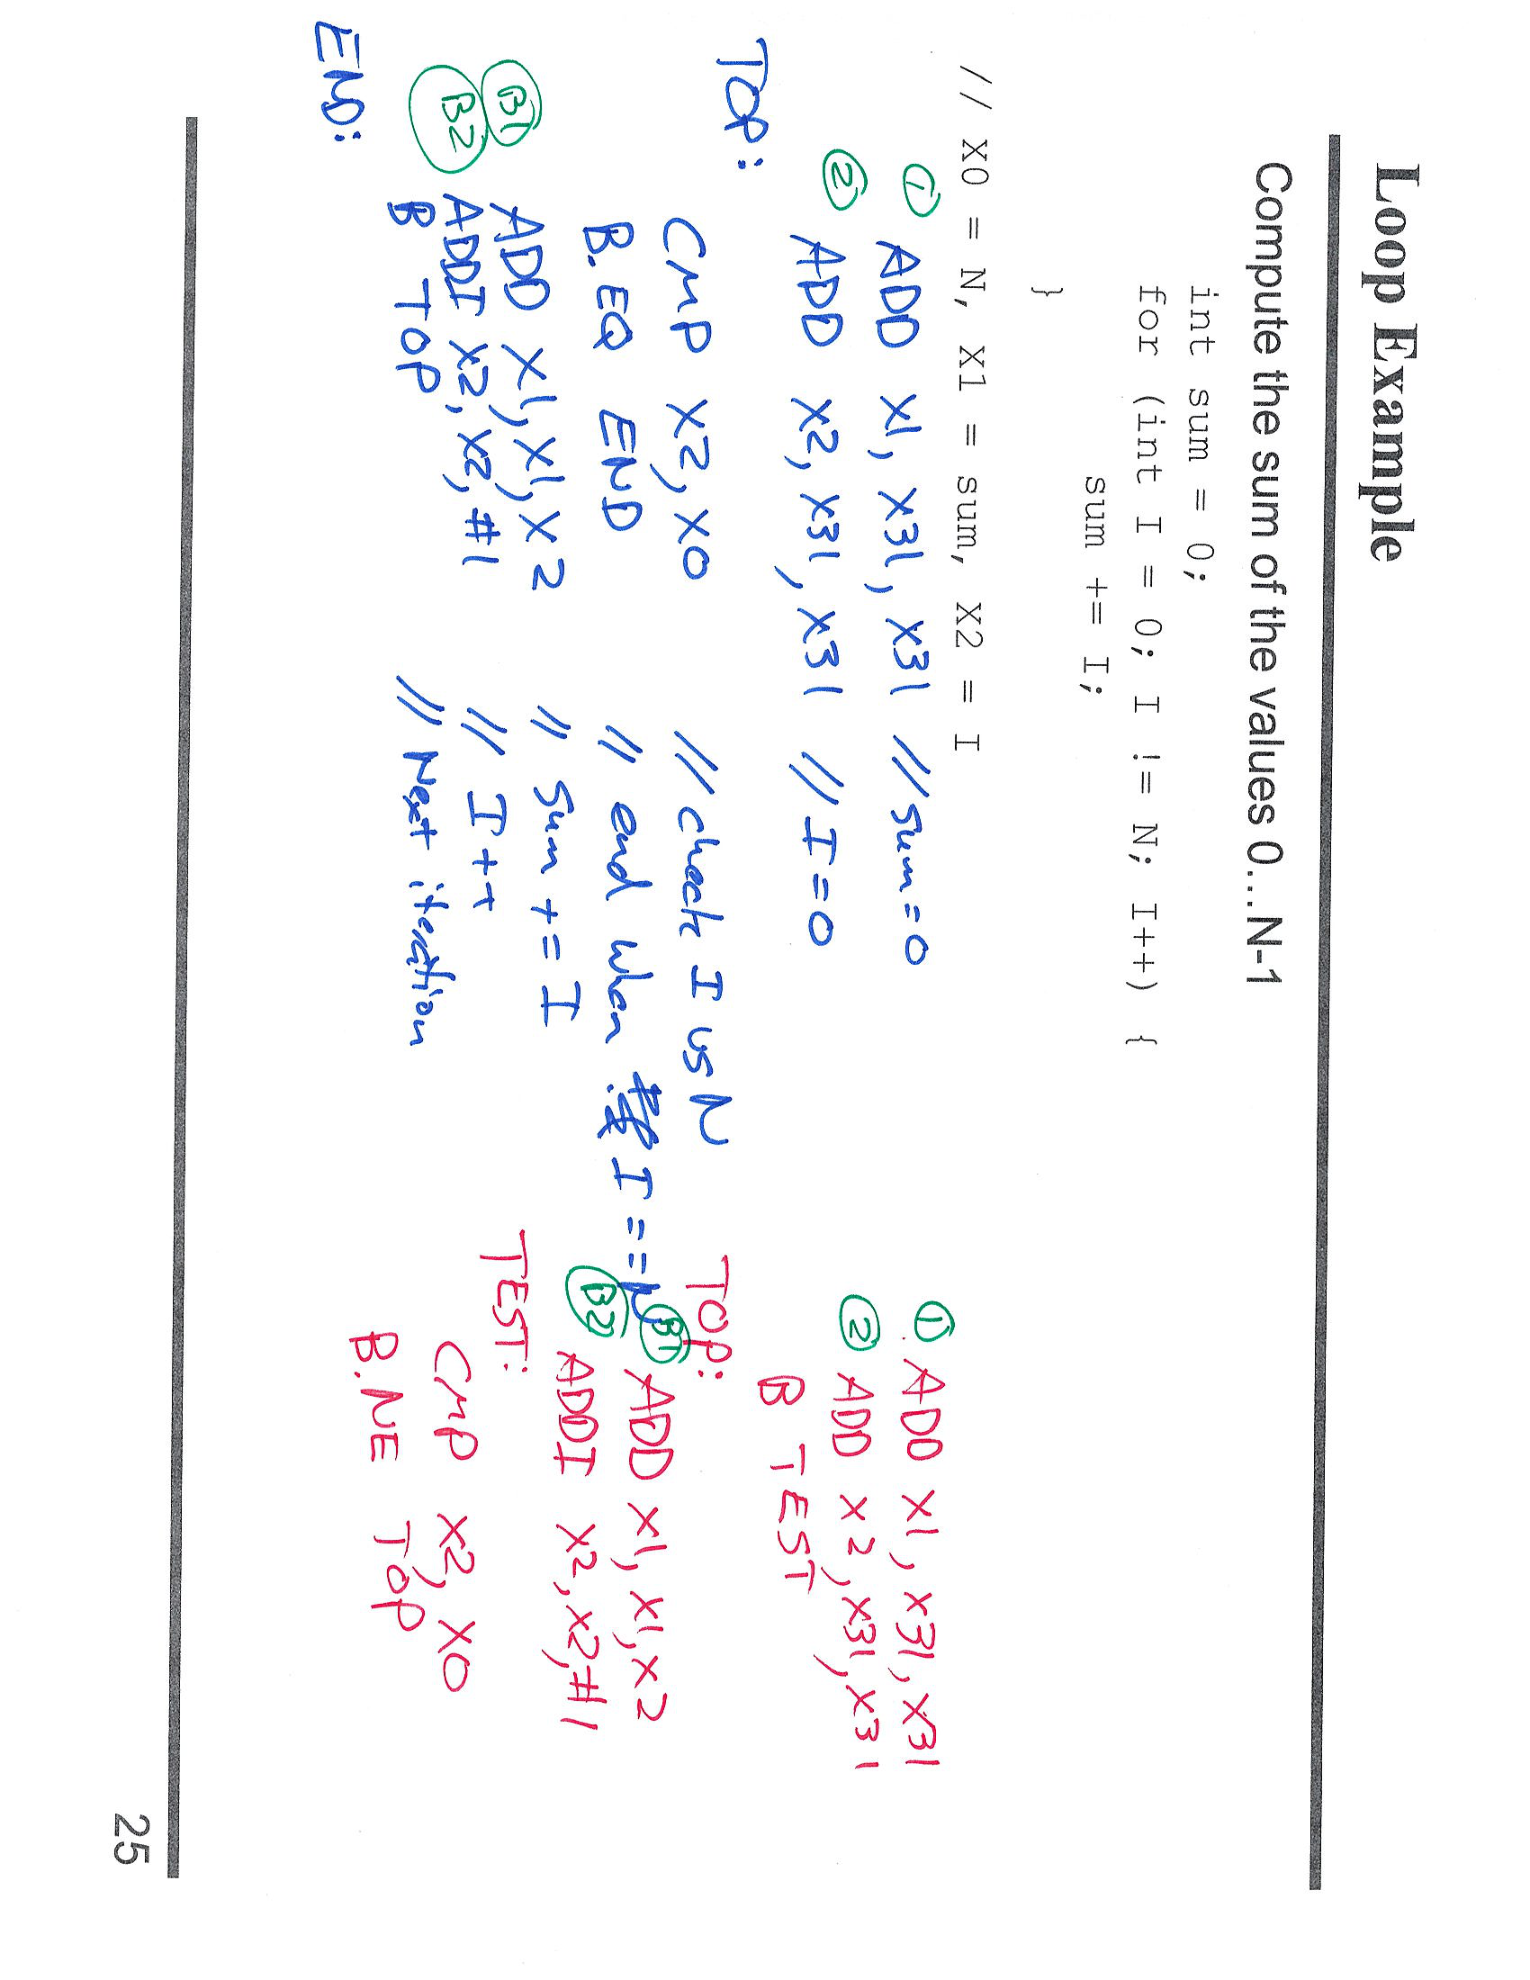 Loop Example
Compute the sum of the values 0…N-1
int sum = 0;
for (int I = 0; I != N; I++) {
sum += I;
}
// X0 = N, X1 = sum, X2 = I
① ADD X1, X31, X31 // sum = 0
② ADD X2, X31, X31 // I = 0
TOP:
CMP X2, X0 // check I vs N
B.EQ END // end when I == N
B1 ADD X1, X1, X2 // sum += I
B2 ADDI X2, X2, #1 // I++
B TOP // Next iteration
END:
① ADD X1, X31, X31
② ADD X2, X31, X31
B TEST
TOP:
B1 ADD X1, X1, X2
B2 ADDI X2, X2, #1
TEST:
CMP X2, X0
B.NE TOP
25